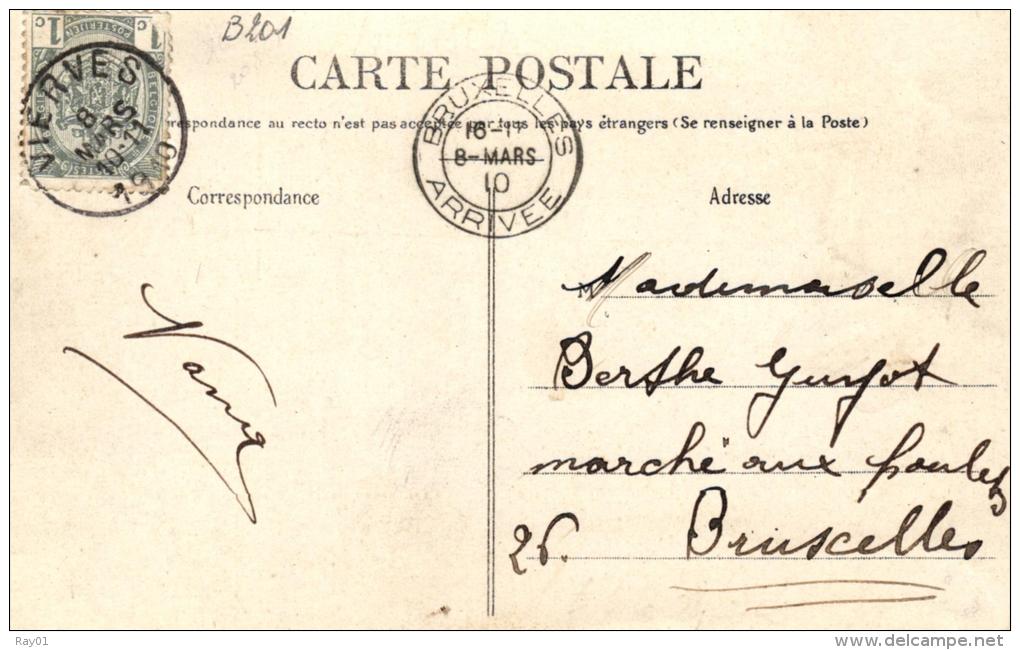 B201
1c POSTERIJEN 1c
VIERVES
8
MARS
10-11
1910
CARTE POSTALE
respondance au recto n'est pas acceptée par tous les pays étrangers (Se renseigner à la Poste)
BRUXELLES
16-17
8-MARS
10
ARRIVEE
Correspondance
Adresse
Mademoiselle
Berthe Guyot
marché aux poulets
26. Bruxelles
Ray01
www.delcampe.net